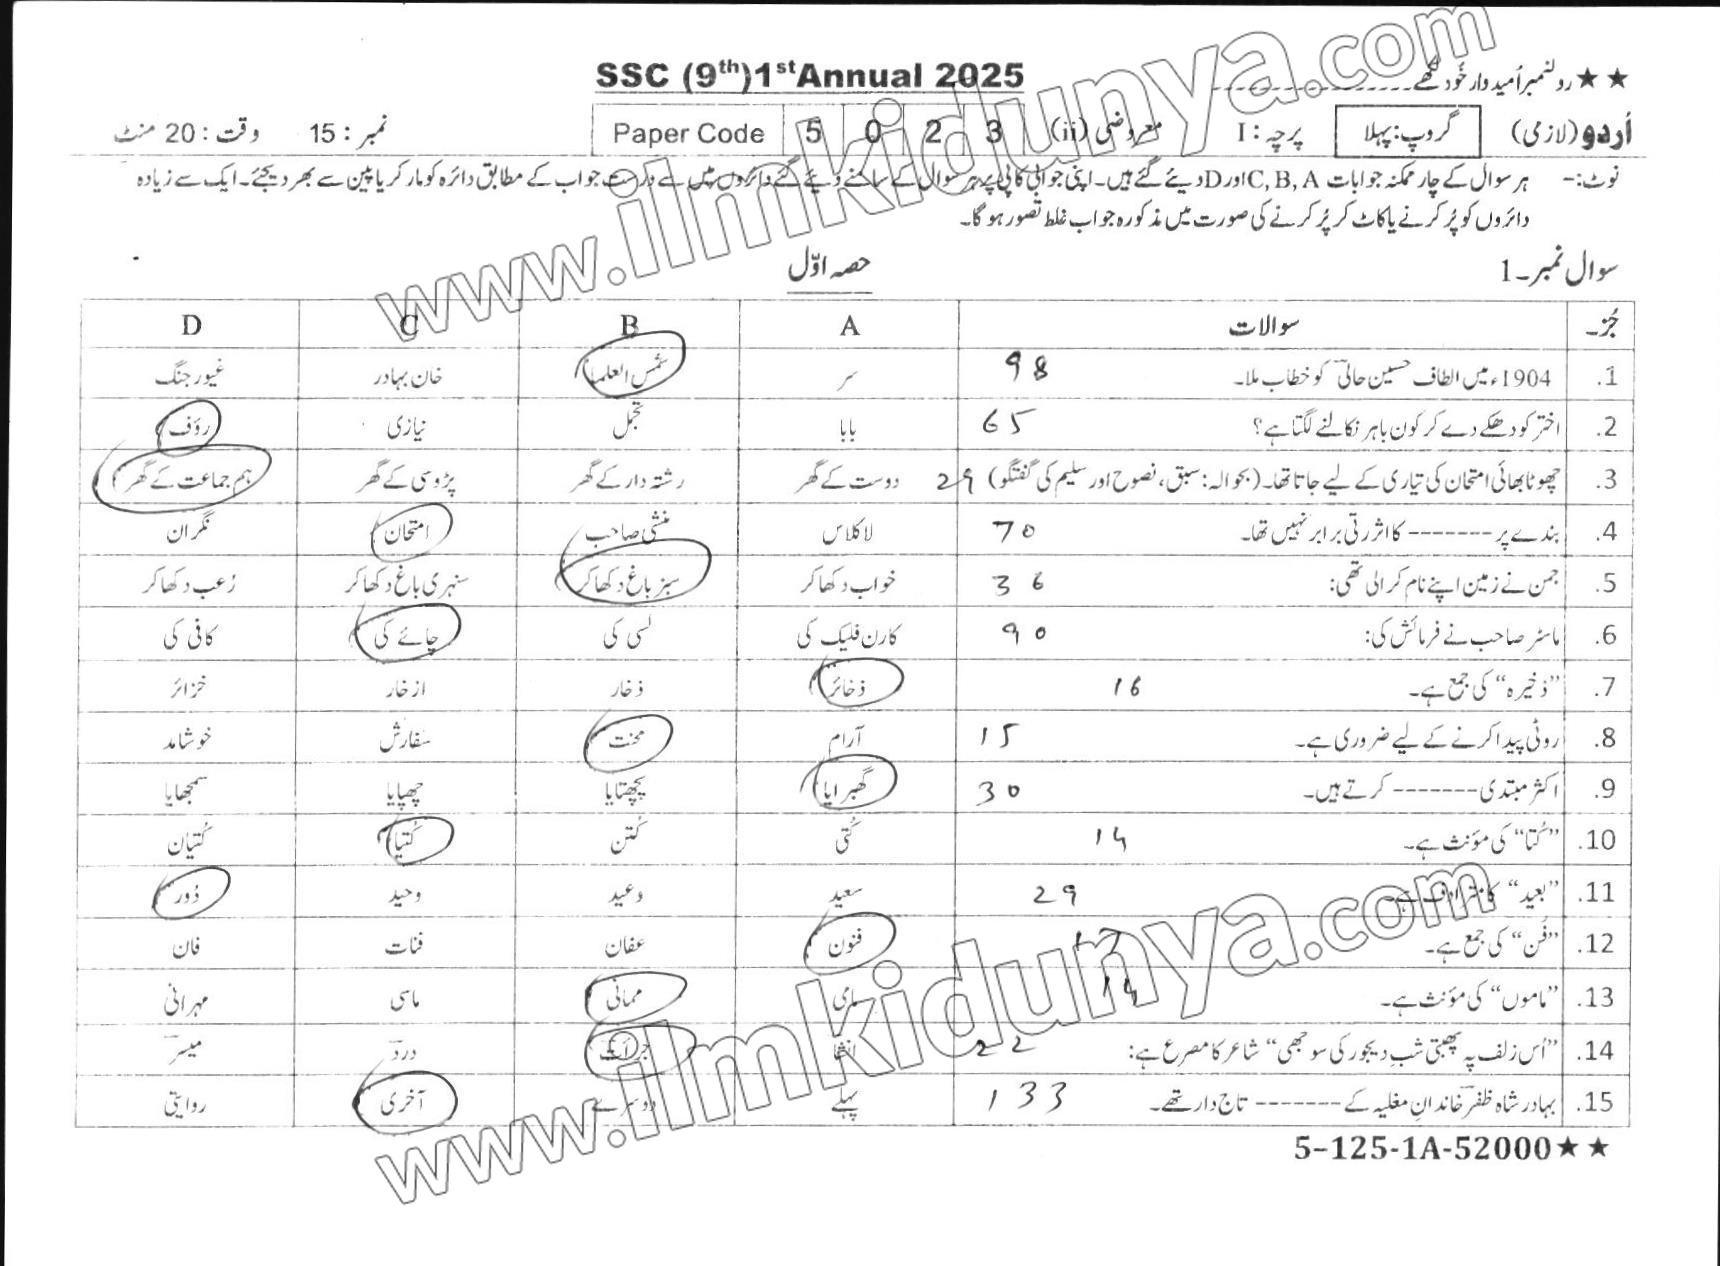 www.ilmkidunya.com
SSC (9th)1stAnnual 2025
★★ رولنمبر اُمیدوار خود لکھے۔
اُردو (لازمی) گروپ: پہلا پرچہ: I معروضی (ii) Paper Code 5 0 2 3 نمبر: 15 وقت: 20 منٹ
نوٹ:- ہر سوال کے چار ممکنہ جوابات C, B, A اور D دیئے گئے ہیں۔ اپنی جوابی کاپی پر ہر سوال کے سامنے دیئے گئے دائروں میں سے درست جواب کے مطابق دائرہ کو مارکر یا پین سے بھر دیجئے۔ ایک سے زیادہ
دائروں کو پُر کرنے یا کاٹ کر پُر کرنے کی صورت میں مذکورہ جواب غلط تصور ہوگا۔
سوال نمبر۔1 حصہ اوّل
جُز۔ سوالات A B C D
.1 1904ء میں الطاف حسین حالیؔ کو خطاب ملا۔ 98 سر شمس العلما خان بہادر غیور جنگ
.2 اختر کو دھکے دے کر کون باہر نکالنے لگتا ہے؟ 65 بابا تجمل نیازی رؤف
.3 چھوٹا بھائی امتحان کی تیاری کے لیے جاتا تھا۔ (بحوالہ: سبق، نصوح اور سلیم کی گفتگو) 29 دوست کے گھر رشتہ دار کے گھر پڑوسی کے گھر ہم جماعت کے گھر
.4 بندے پر ------- کا اثر رتی برابر نہیں تھا۔ 70 لا کلاس منشی صاحب امتحان نگران
.5 جمن نے زمین اپنے نام کرالی تھی: 36 خواب دکھا کر سبز باغ دکھا کر سنہری باغ دکھا کر رُعب دکھا کر
.6 ماسٹر صاحب نے فرمائش کی: 90 کارن فلیک کی لسی کی چائے کی کافی کی
.7 ”ذخیرہ“ کی جمع ہے۔ 16 ذخائر ذخار ازخار خزائر
.8 روٹی پیدا کرنے کے لیے ضروری ہے۔ 15 آرام محنت سفارش خوشامد
.9 اکثر مبتدی ------- کرتے ہیں۔ 30 گھبرایا پچھتایا چھپایا سمجھایا
.10 ”کُتا“ کی مؤنث ہے۔ 14 کُتی کُتن کُتیا کُتیان
.11 ”بعید“ کا مترادف ہے۔ 29 سعید وعید وحید دُور
.12 ”فن“ کی جمع ہے۔ فنون عفان فنات فان
.13 ”ماموں“ کی مؤنث ہے۔ 14 ممانی ماسی مہرانی
.14 ”اُس زلف پہ پھبتی شبِ دیجور کی سوجھی“ شاعر کا مصرع ہے: 22 انشا جرأت دردؔ میسرؔ
.15 بہادر شاہ ظفرؔ خاندانِ مغلیہ کے ------- تاج دار تھے۔ 133 پہلے دوسرے آخری روایتی
5-125-1A-52000★★
www.ilmkidunya.com